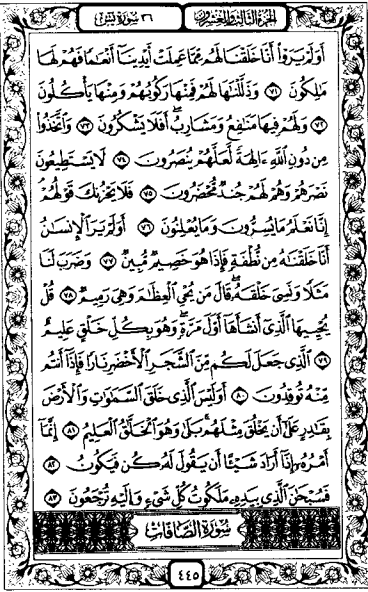 الجزء الثالث والعشرون
٣٦ سورة يس
أَوَلَمْ يَرَوْا أَنَّا خَلَقْنَا لَهُم مِّمَّا عَمِلَتْ أَيْدِينَآ أَنْعَٰمًا فَهُمْ لَهَا
مَٰلِكُونَ ٧١ وَذَلَّلْنَٰهَا لَهُمْ فَمِنْهَا رَكُوبُهُمْ وَمِنْهَا يَأْكُلُونَ
٧٢ وَلَهُمْ فِيهَا مَنَٰفِعُ وَمَشَارِبُ أَفَلَا يَشْكُرُونَ ٧٣ وَٱتَّخَذُوا
مِن دُونِ ٱللَّهِ ءَالِهَةً لَّعَلَّهُمْ يُنصَرُونَ ٧٤ لَا يَسْتَطِيعُونَ
نَصْرَهُمْ وَهُمْ لَهُمْ جُندٌ مُّحْضَرُونَ ٧٥ فَلَا يَحْزُنكَ قَوْلُهُمْ
إِنَّا نَعْلَمُ مَا يُسِرُّونَ وَمَا يُعْلِنُونَ ٧٦ أَوَلَمْ يَرَ ٱلْإِنسَٰنُ
أَنَّا خَلَقْنَٰهُ مِن نُّطْفَةٍ فَإِذَا هُوَ خَصِيمٌ مُّبِينٌ ٧٧ وَضَرَبَ لَنَا
مَثَلًا وَنَسِىَ خَلْقَهُۥ قَالَ مَن يُحْىِ ٱلْعِظَٰمَ وَهِىَ رَمِيمٌ ٧٨ قُلْ
يُحْيِيهَا ٱلَّذِىٓ أَنشَأَهَآ أَوَّلَ مَرَّةٍ وَهُوَ بِكُلِّ خَلْقٍ عَلِيمٌ
٧٩ ٱلَّذِى جَعَلَ لَكُم مِّنَ ٱلشَّجَرِ ٱلْأَخْضَرِ نَارًا فَإِذَآ أَنتُم
مِّنْهُ تُوقِدُونَ ٨٠ أَوَلَيْسَ ٱلَّذِى خَلَقَ ٱلسَّمَٰوَٰتِ وَٱلْأَرْضَ
بِقَٰدِرٍ عَلَىٰٓ أَن يَخْلُقَ مِثْلَهُم بَلَىٰ وَهُوَ ٱلْخَلَّٰقُ ٱلْعَلِيمُ ٨١ إِنَّمَآ
أَمْرُهُۥٓ إِذَآ أَرَادَ شَيْـًٔا أَن يَقُولَ لَهُۥ كُن فَيَكُونُ ٨٢
فَسُبْحَٰنَ ٱلَّذِى بِيَدِهِۦ مَلَكُوتُ كُلِّ شَىْءٍ وَإِلَيْهِ تُرْجَعُونَ ٨٣
سورة الصافات
٤٤٥